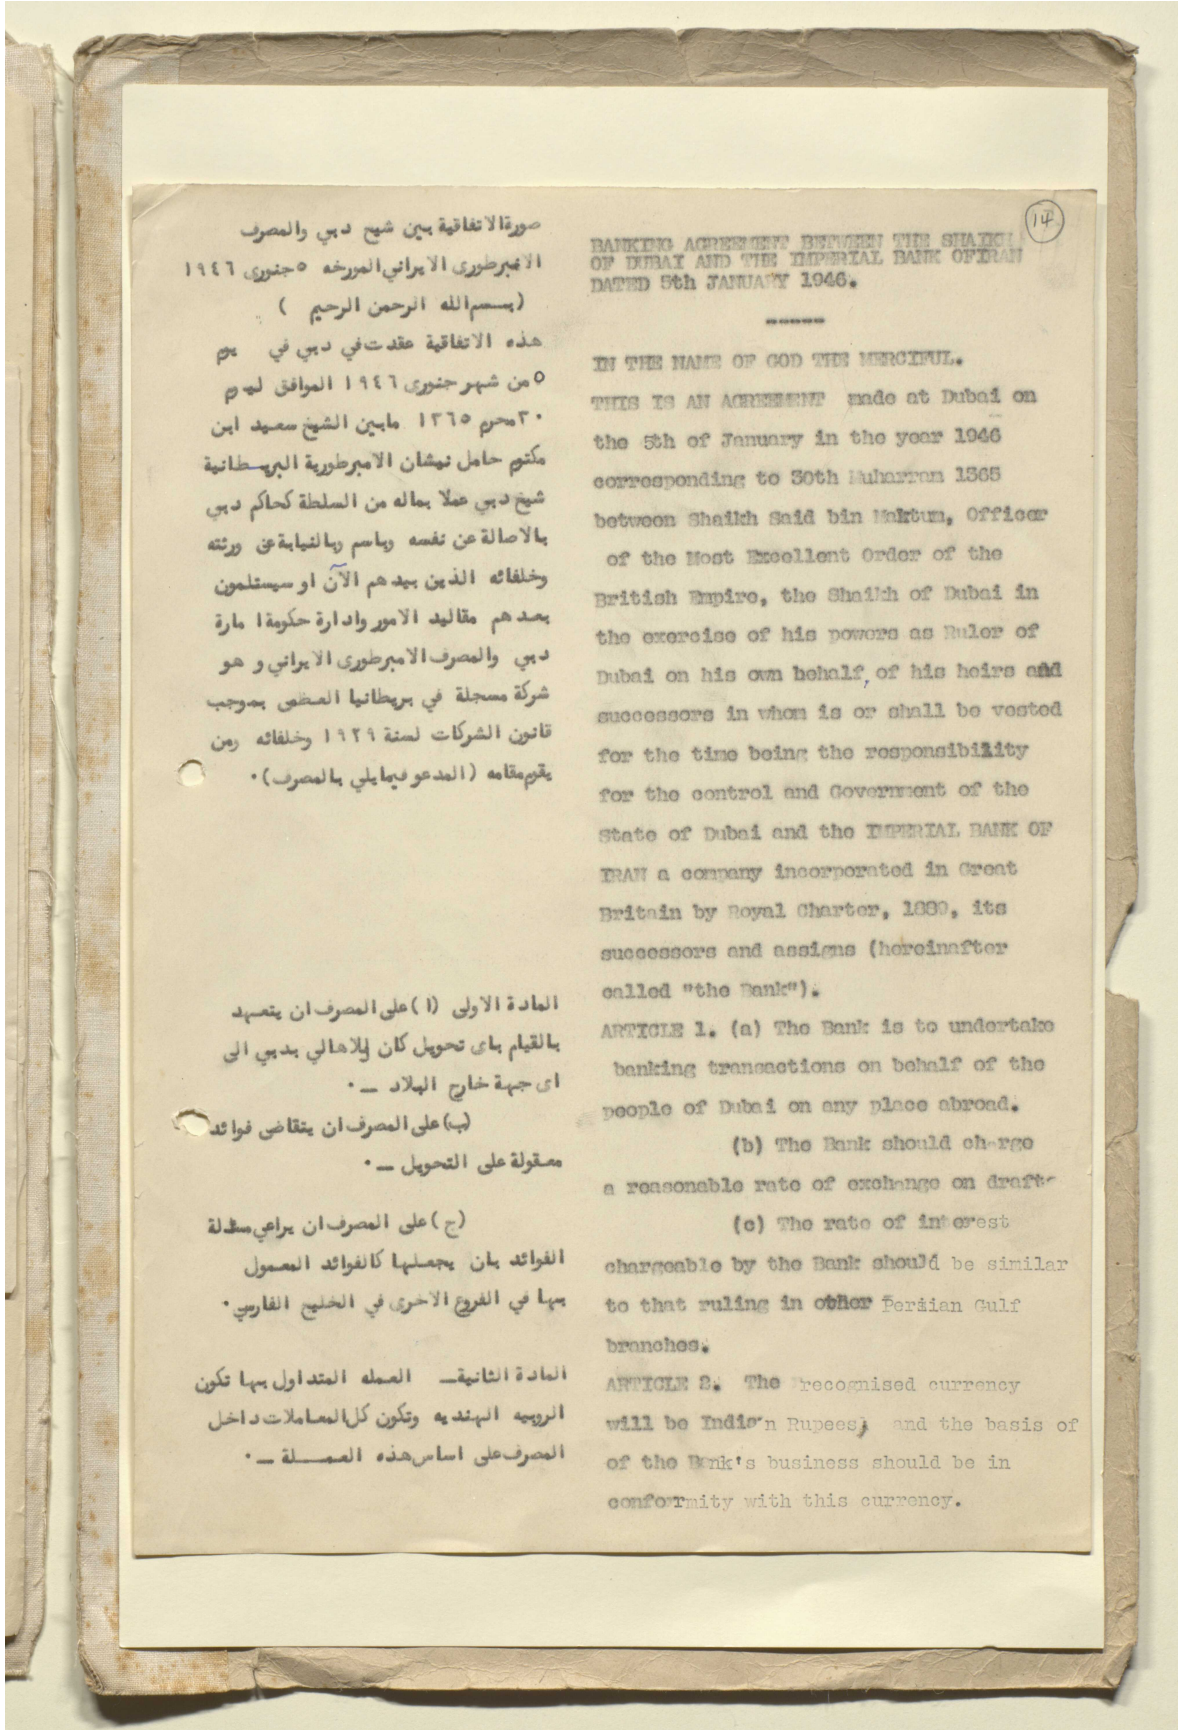 14
صورة الاتفاقية بين شيخ دبي والمصرف
الامبرطوري الايراني المورخه ٥ جنورى ١٩٤٦
(بسم الله الرحمن الرحيم )
هذه الاتفاقية عقدت في دبي في يوم
٥ من شهر جنورى ١٩٤٦ الموافق ليوم
٣٠ محرم ١٣٦٥ مابين الشيخ سعيد ابن
مكتوم حامل نيشان الامبرطورية البريطانية
شيخ دبي عملا بماله من السلطة كحاكم دبي
بالاصالة عن نفسه وباسم وبالنيابة عن ورثته
وخلفائه الذين بيدهم الآن او سيستلمون
بعدهم مقاليد الامور وادارة حكومة امارة
دبي والمصرف الامبرطورى الايراني و هو
شركة مسجلة في بريطانيا العظمى بموجب
قانون الشركات لسنة ١٩٢٩ وخلفائه ومن
يقوم مقامه (المدعو فيمايلي بالمصرف)٠
المادة الاولى (ا) على المصرف ان يتعهد
بالقيام باى تحويل كان للاهالي بدبي الى
اى جهة خارج البلاد ــ ٠
(ب) على المصرف ان يتقاضى فوائد
معقولة على التحويل ــ ٠
(ج) على المصرف ان يراعي مسئلة
الفوائد بان يجعلها كالفوائد المعمول
بها في الفروع الاخرى في الخليج الفارسي٠
المادة الثانية ــ العمله المتداول بها تكون
الروبيه الهنديه وتكون كل المعاملات داخل
المصرف على اساس هذه العمـــلة ــ ٠
BANKING AGREEMENT BETWEEN THE SHAIKH
OF DUBAI AND THE IMPERIAL BANK OFIRAN
DATED 5th JANUARY 1946.
-----
IN THE NAME OF GOD THE MERCIFUL.
THIS IS AN AGREEMENT made at Dubai on
the 5th of January in the year 1946
corresponding to 30th Muharram 1365
between Shaikh Said bin Maktum, Officer
of the Most Excellent Order of the
British Empire, the Shaikh of Dubai in
the exercise of his powers as Ruler of
Dubai on his own behalf, of his heirs and
successors in whom is or shall be vested
for the time being the responsibility
for the control and Government of the
State of Dubai and the IMPERIAL BANK OF
IRAN a company incorporated in Great
Britain by Royal Charter, 1889, its
successors and assigns (hereinafter
called "the Bank").
ARTICLE 1. (a) The Bank is to undertake
banking transactions on behalf of the
people of Dubai on any place abroad.
(b) The Bank should charge
a reasonable rate of exchange on drafts
(c) The rate of interest
chargeable by the Bank should be similar
to that ruling in other Persian Gulf
branches.
ARTICLE 2. The recognised currency
will be Indian Rupees, and the basis of
of the Bank's business should be in
conformity with this currency.